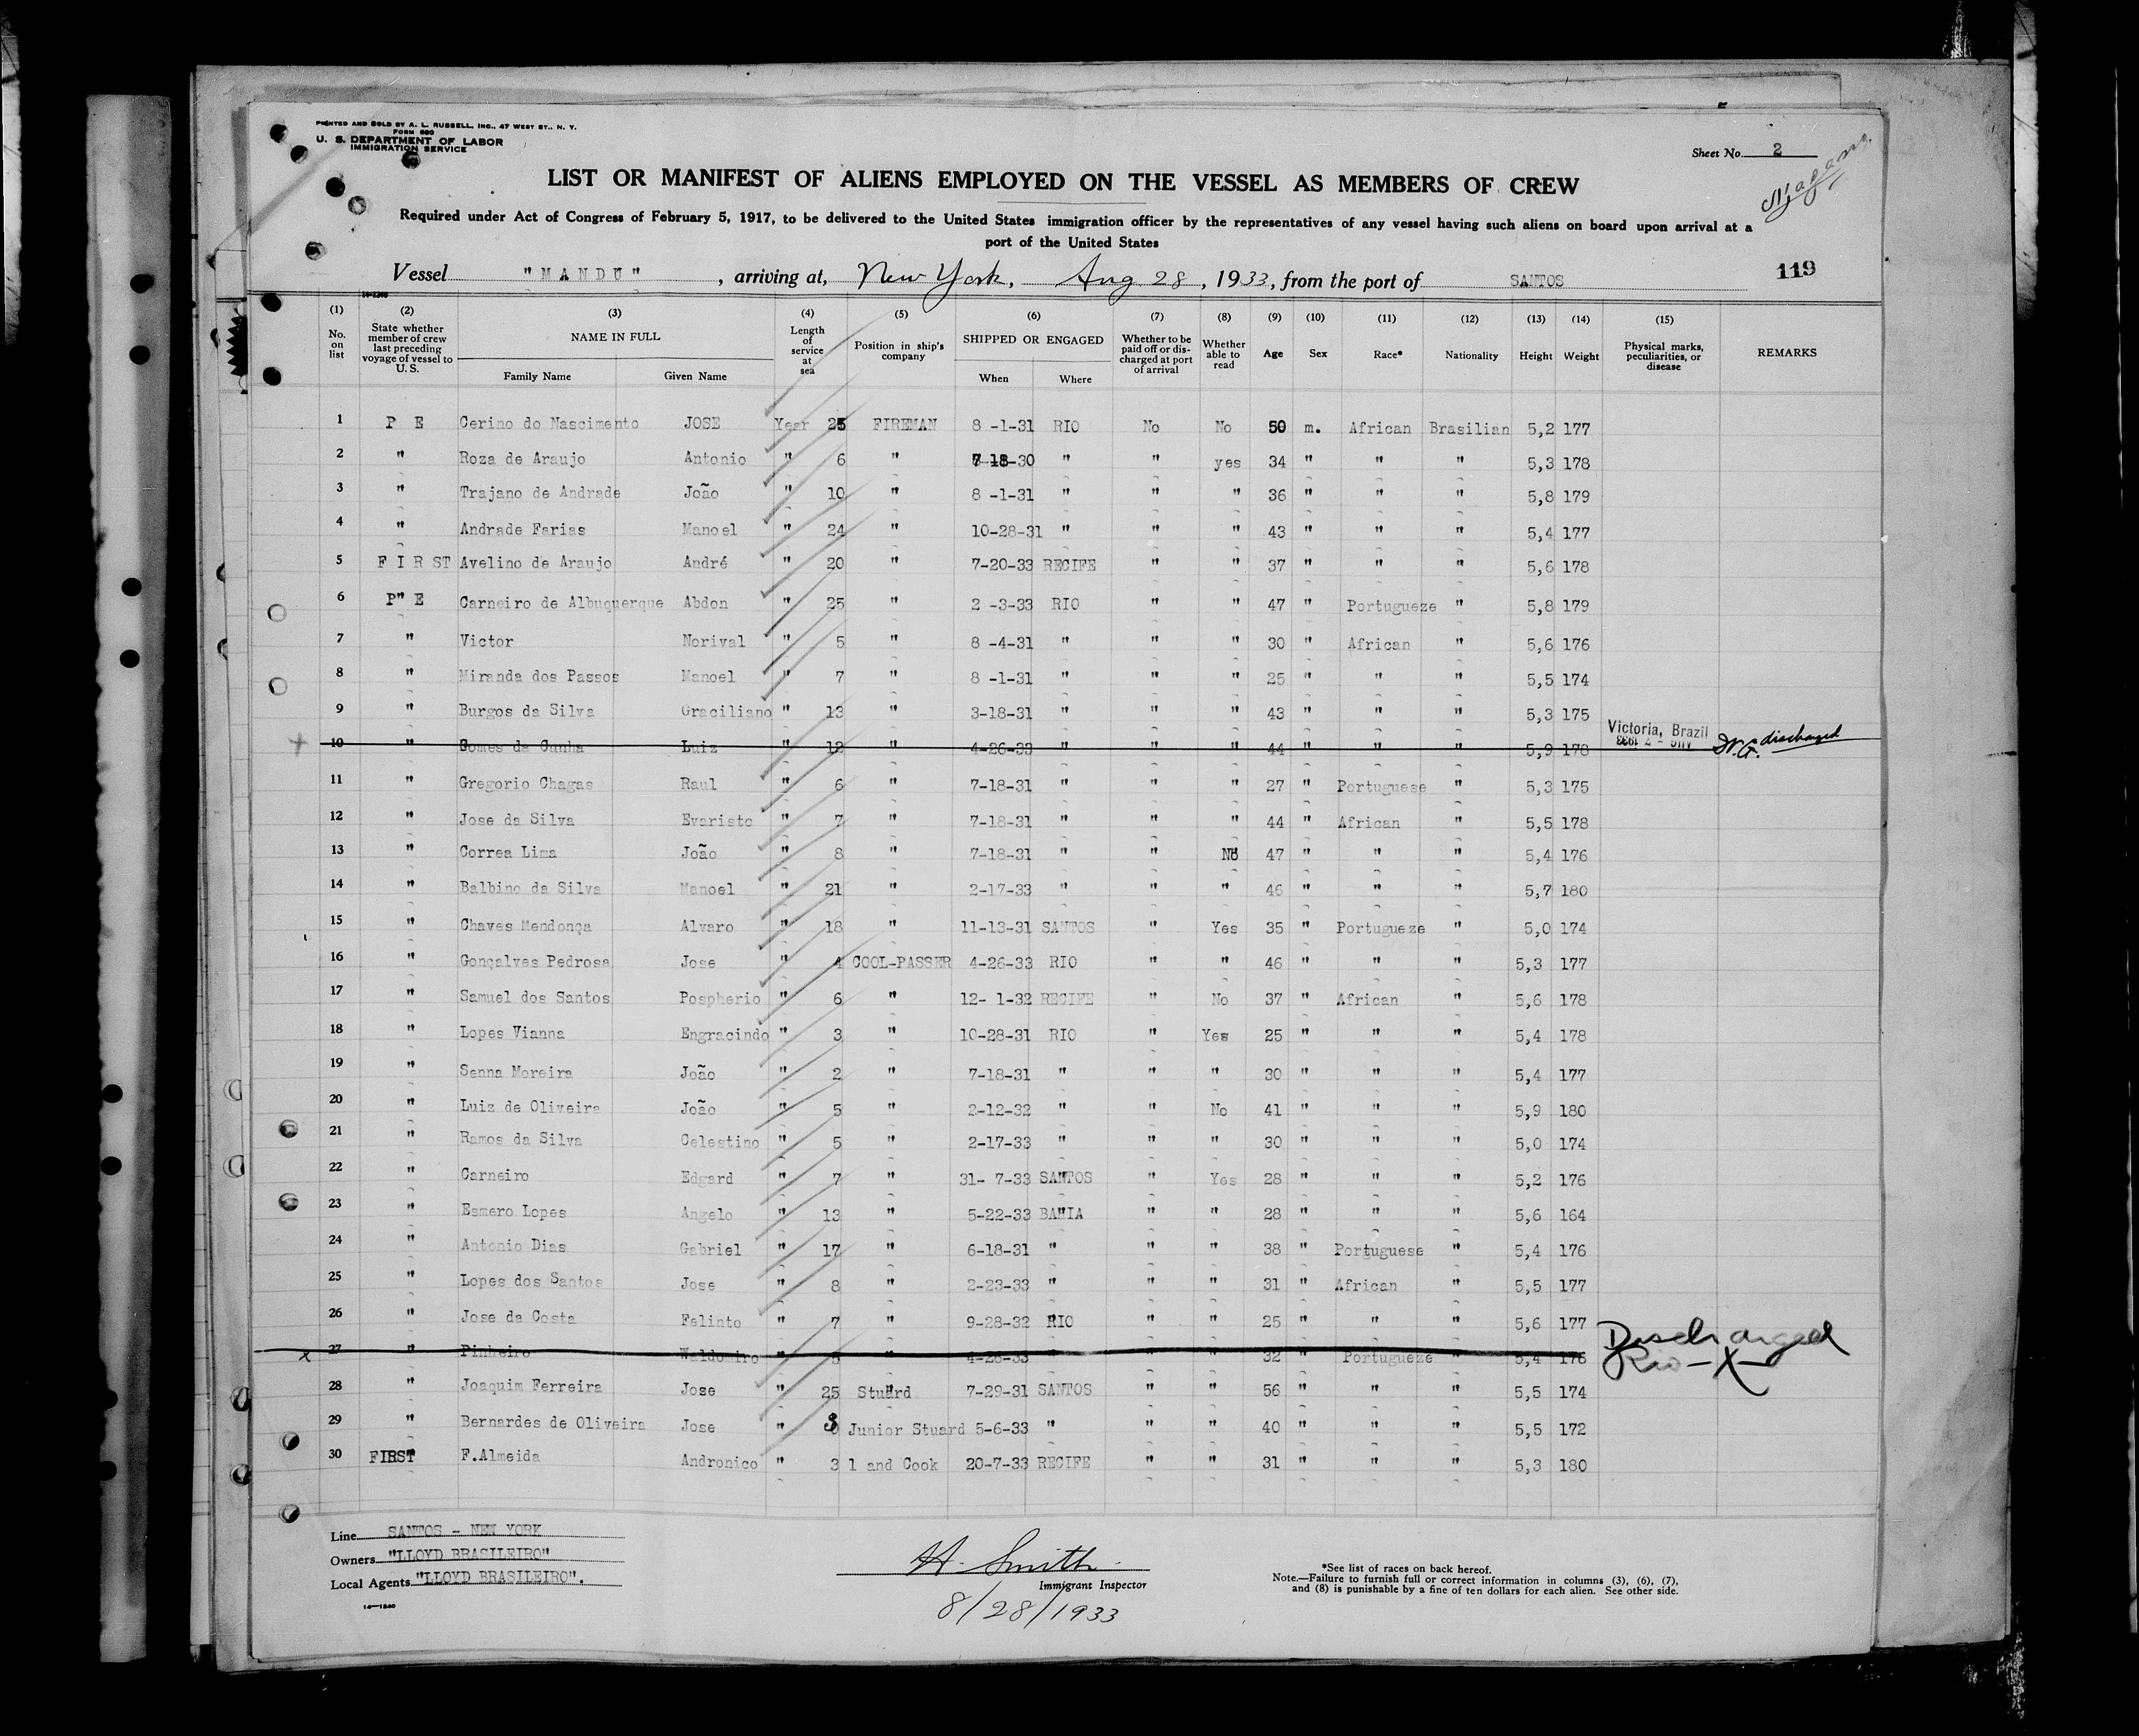 PRINTED AND SOLD BY A. L. RUSSELL, INC., 47 WEST ST., N. Y.
FORM 680
U. S. DEPARTMENT OF LABOR
IMMIGRATION SERVICE
Sheet No. 2
LIST OR MANIFEST OF ALIENS EMPLOYED ON THE VESSEL AS MEMBERS OF CREW
Required under Act of Congress of February 5, 1917, to be delivered to the United States immigration officer by the representatives of any vessel having such aliens on board upon arrival at a
port of the United States
Vessel "MANDU", arriving at, New York, Aug 28, 1933, from the port of SANTOS
119
(1) No. on list (2) State whether member of crew last preceding voyage of vessel to U. S. (3) NAME IN FULL Family Name Given Name (4) Length of service at sea (5) Position in ship's company (6) SHIPPED OR ENGAGED When Where (7) Whether to be paid off or discharged at port of arrival (8) Whether able to read (9) Age (10) Sex (11) Race* (12) Nationality (13) Height (14) Weight (15) Physical marks, peculiarities, or disease REMARKS
1 P E Cerino do Nascimento JOSE Year 25 FIREMAN 8 -1-31 RIO No No 50 m. African Brasilian 5,2 177
2 " Roza de Araujo Antonio " 6 " 7 18-30 " " yes 34 " " " 5,3 178
3 " Trajano de Andrade João " 10 " 8 -1-31 " " " 36 " " " 5,8 179
4 " Andrade Farias Manoel " 24 " 10-28-31 " " " 43 " " " 5,4 177
5 FIRST Avelino de Araujo André " 20 " 7-20-33 RECIFE " " 37 " " " 5,6 178
6 P" E Carneiro de Albuquerque Abdon " 25 " 2 -3-33 RIO " " 47 " Portugueze " 5,8 179
7 " Victor Norival " 5 " 8 -4-31 " " " 30 " African " 5,6 176
8 " Miranda dos Passos Manoel " 7 " 8 -1-31 " " " 25 " " " 5,5 174
9 " Burgos da Silva Graciliano " 13 " 3-18-31 " " " 43 " " " 5,3 175
10 " Gomes da Cunha Luiz " 12 " 4-26-33 " " " 44 " " " 5,9 178 Victoria, Brazil AUG - 7 1933 discharged
11 " Gregorio Chagas Raul " 6 " 7-18-31 " " " 27 " Portuguese " 5,3 175
12 " Jose da Silva Evaristo " 7 " 7-18-31 " " " 44 " African " 5,5 178
13 " Correa Lima João " 8 " 7-18-31 " " No 47 " " " 5,4 176
14 " Balbino da Silva Manoel " 21 " 2-17-33 " " " 46 " " " 5,7 180
15 " Chaves Mendonça Alvaro " 18 " 11-13-31 SANTOS " Yes 35 " Portugueze " 5,0 174
16 " Gonçalves Pedrosa Jose " 4 COOL-PASSER 4-26-33 RIO " " 46 " " " 5,3 177
17 " Samuel dos Santos Pospherio " 6 " 12- 1-32 RECIFE " No 37 " African " 5,6 178
18 " Lopes Vianna Engracindo " 3 " 10-28-31 RIO " Yes 25 " " " 5,4 178
19 " Senna Moreira João " 2 " 7-18-31 " " " 30 " " " 5,4 177
20 " Luiz de Oliveira João " 5 " 2-12-32 " " No 41 " " " 5,9 180
21 " Ramos da Silva Celestino " 5 " 2-17-33 " " " 30 " " " 5,0 174
22 " Carneiro Edgard " 7 " 31- 7-33 SANTOS " Yes 28 " " " 5,2 176
23 " Esmero Lopes Angelo " 13 " 5-22-33 BAHIA " " 28 " " " 5,6 164
24 " Antonio Dias Gabriel " 17 " 6-18-31 " " " 38 " Portuguese " 5,4 176
25 " Lopes dos Santos Jose " 8 " 2-23-33 " " " 31 " African " 5,5 177
26 " Jose da Costa Felinto " 7 " 9-28-32 RIO " " 25 " " " 5,6 177
27 " Pinheiro Waldomiro " 5 " 4-26-33 " " " 32 " Portugueze " 5,4 176 Discharged Rio -X-
28 " Joaquim Ferreira Jose " 25 Stuard 7-29-31 SANTOS " " 56 " " " 5,5 174
29 " Bernardes de Oliveira Jose " 3 Junior Stuard 5-6-33 " " " 40 " " " 5,5 172
30 FIRST F.Almeida Andronico " 3 1 and Cook 20-7-33 RECIFE " " 31 " " " 5,3 180
Line SANTOS - NEW YORK
Owners "LLOYD BRASILEIRO"
Local Agents "LLOYD BRASILEIRO".
14-1240
H. Smith
Immigrant Inspector
8/28/1933
*See list of races on back hereof.
Note.—Failure to furnish full or correct information in columns (3), (6), (7),
and (8) is punishable by a fine of ten dollars for each alien. See other side.